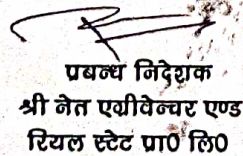 प्रबन्ध निदेशक
श्री नेत एग्रीवेन्चर एण्ड
रियल स्टेट प्रा0 लि0